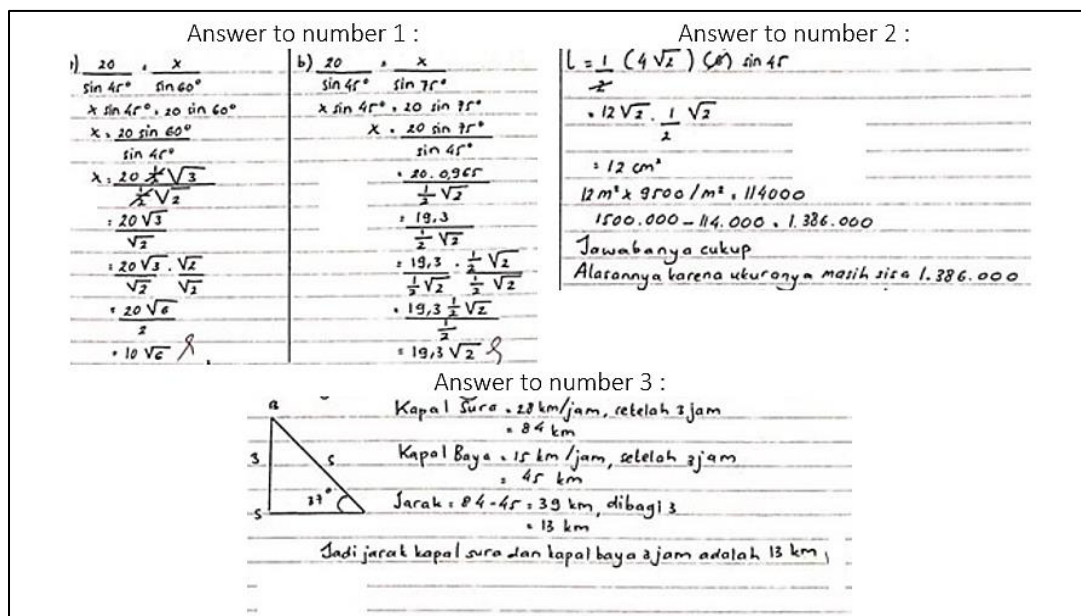 Answer to number 1 :
1) 20 = x
sin 45° sin 60°
x sin 45° = 20 sin 60°
x = 20 sin 60°
sin 45°
x = 20 ½ √3
½ √2
= 20 √3
√2
= 20 √3 . √2
√2 √2
= 20 √6
2
= 10 √6
b) 20 = x
sin 45° sin 75°
x sin 45° = 20 sin 75°
x = 20 sin 75°
sin 45°
= 20 . 0,965
½ √2
= 19,3
½ √2
= 19,3 . ½ √2
½ √2 ½ √2
= 19,3 ½ √2
½
= 19,3 √2
Answer to number 2 :
L = 1 (4 √2) sin 45
2
= 12 √2 . 1 √2
2
= 12 cm²
12 m² x 9500 / m² = 114000
1500.000 – 114.000 = 1.386.000
Jawabanya cukup
Alasannya karena ukuranya masih sisa 1.386.000
Answer to number 3 :
B
3 5
37°
S
Kapal Sura = 28 km/jam, setelah 3 jam
= 84 km
Kapal Baya = 15 km/jam, setelah 3 jam
= 45 km
Jarak = 84 - 45 = 39 km, dibagi 3
= 13 km
Jadi jarak kapal sura dan kapal baya 3 jam adalah 13 km